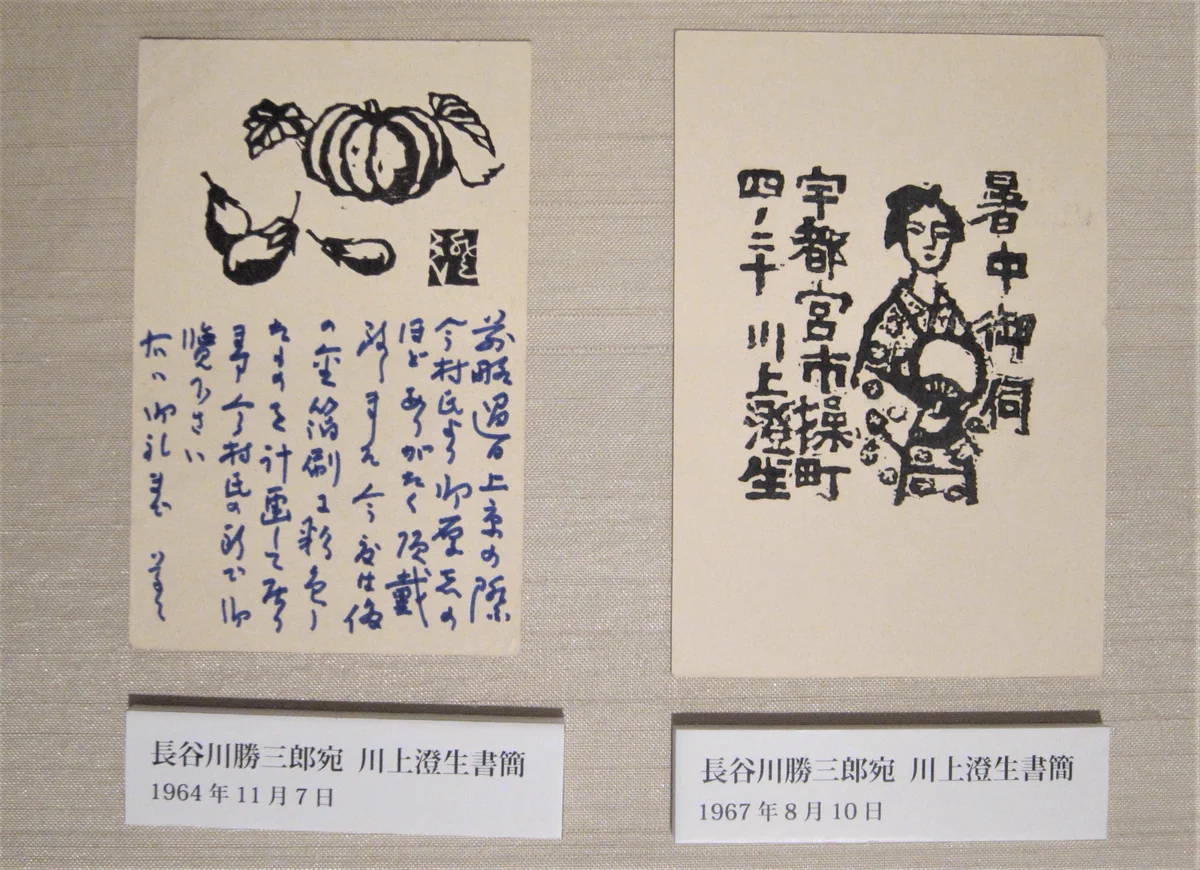 前略過日上京の際
今村氏より御厚志の
ほどありがたく頂戴
致しました 今度は
の金箔刷に彩色し
たものを計画して居り
ます 今村氏の所で御
覧下さい
右御礼まで 草々
長谷川勝三郎宛 川上澄生書簡
1964年11月7日
暑中御伺
宇都宮市操町
四ノ二十 川上澄生
長谷川勝三郎宛 川上澄生書簡
1967年8月10日